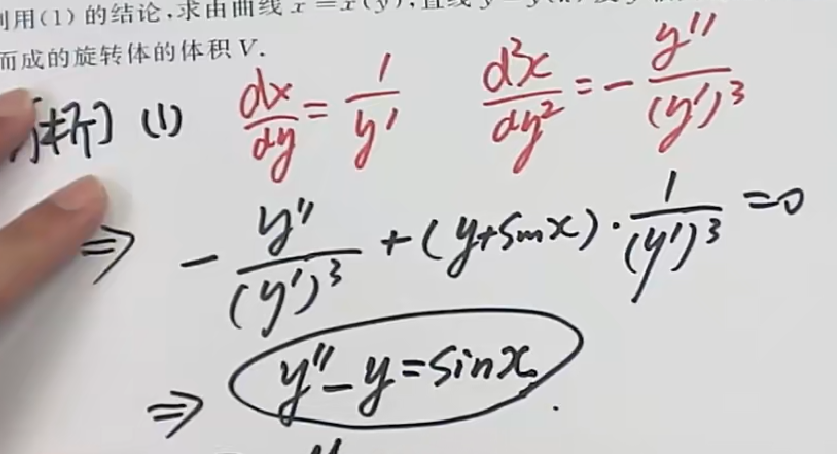 用(1) 的结论,求由曲线 x=x(y),直线
而成的旋转体的体积 V.
析] (1) dx/dy = 1/y' d²x/dy² = - y''/(y')³
⇒ - y''/(y')³ + (y+sinx) · 1/(y')³ = 0
⇒ y''-y=sinx.